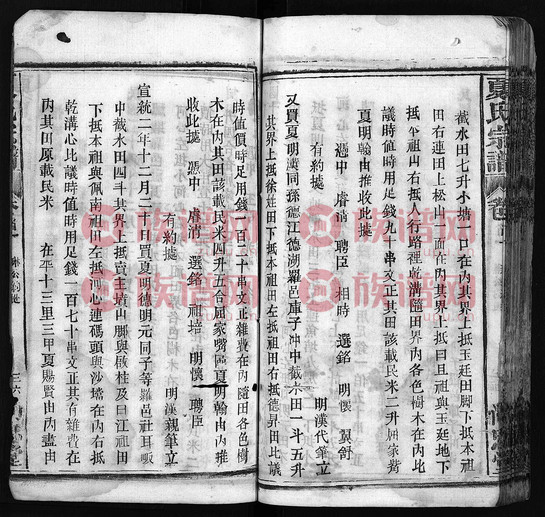 夏氏宗譜
截水田七升小塘一口在內其界上抵玉廷田脚下抵本祖
田右連田上松山一面在內其界上抵曰且祖與玉廷地下
抵本祖山右抵人行路裡乾溝隨田界內各色樹木在內比
議時值時用足錢九十串文正其田該載民米二升屈家嘴
夏明翰由推收此據
憑中 睿清 聘臣 相時 選銘 明懷 翼舒
有約據 明漢代筆立
又買夏明漢同孫德江德湖羅邑庫子冲中截水田一斗五升
其界上抵徐姓田下抵本祖田左抵祖田右抵德昇田比議
時值價時足用錢一百二十串文正雜費在內隨田各色樹
木在內其田該載民米四升五合屈家嘴區夏明翰由內推
收此據 憑中 睿清 選銘 祖培 明懷 聘臣
有約據 明漢親筆立
宣統二年十二月二十日買夏明德明元同子等羅邑社耳坂
中截水田四斗其界上抵賣主墳山脚與啟桂及曰江祖田
下抵本祖與佩南祖田左抵溝心連碼頭與沙壋在內右抵
乾溝心比議時值時用足錢一百七十串文正其有雜費在
內其田原載民米 在平十三里三甲夏賜賢由內盡由
三六
族谱网
族谱网
族谱网
族谱网
族谱网
族谱网